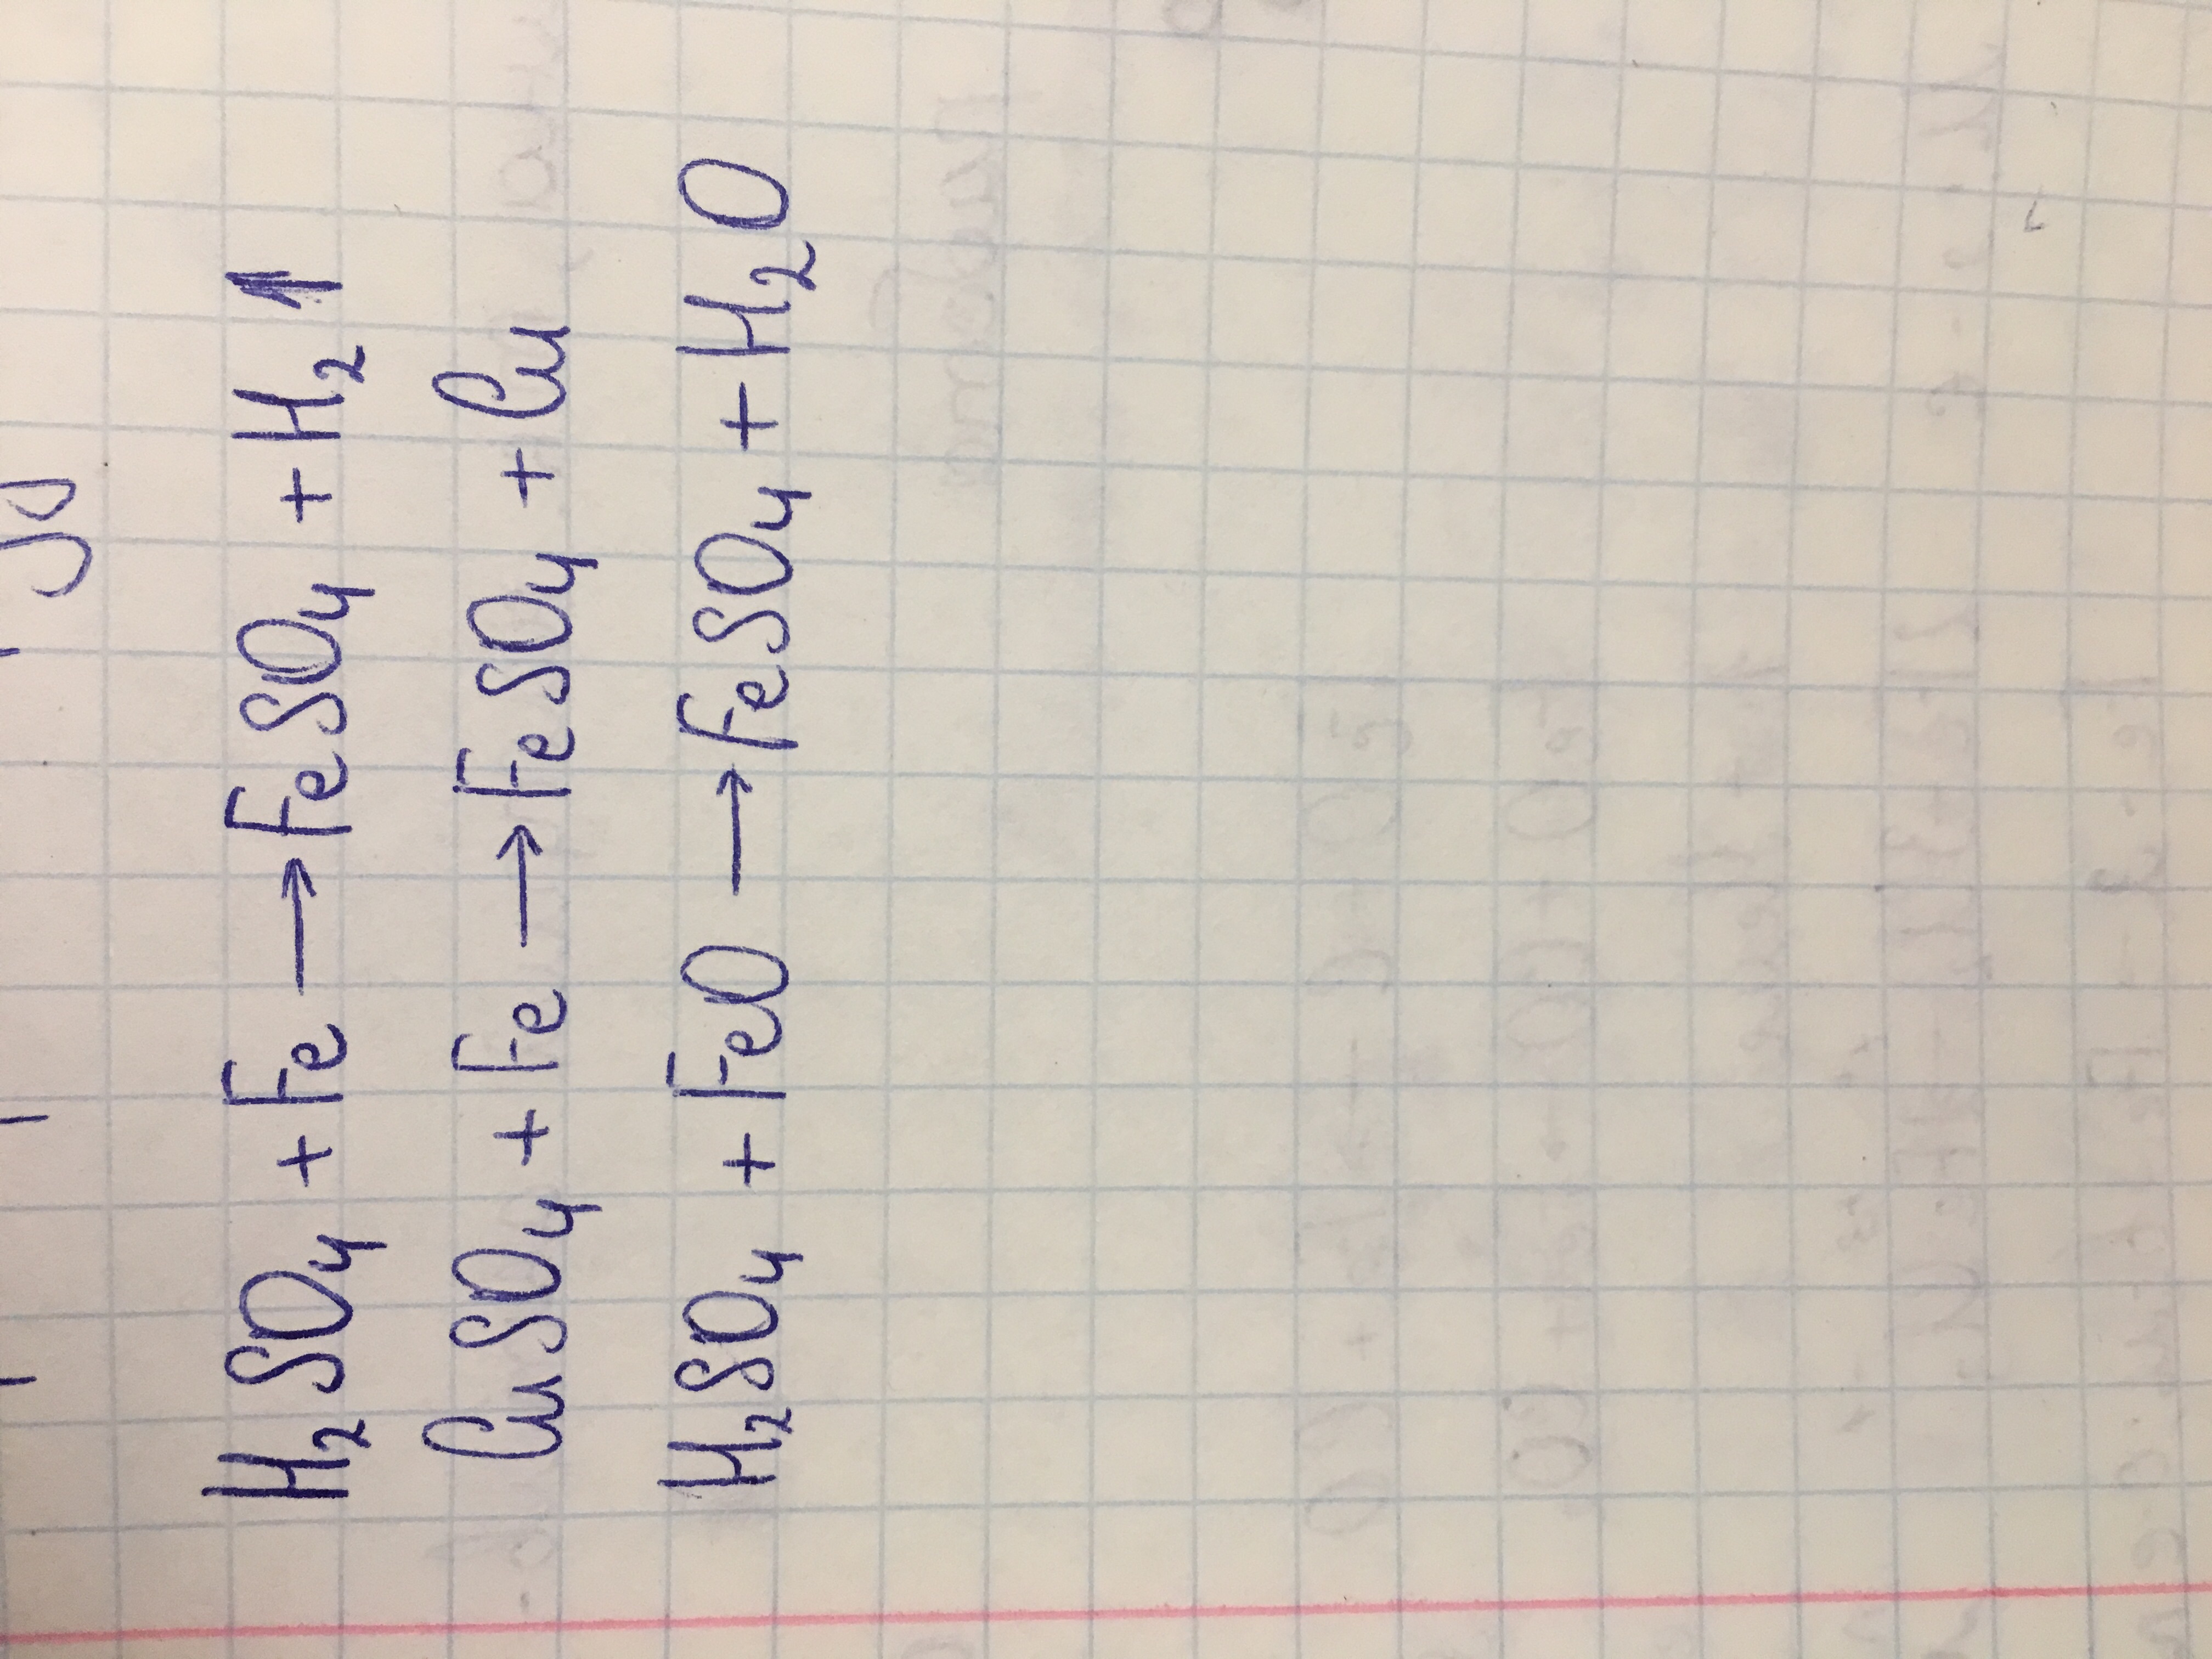 H₂SO₄ + Fe → FeSO₄ + H₂↑
CuSO₄ + Fe → FeSO₄ + Cu
H₂SO₄ + FeO → FeSO₄ + H₂O